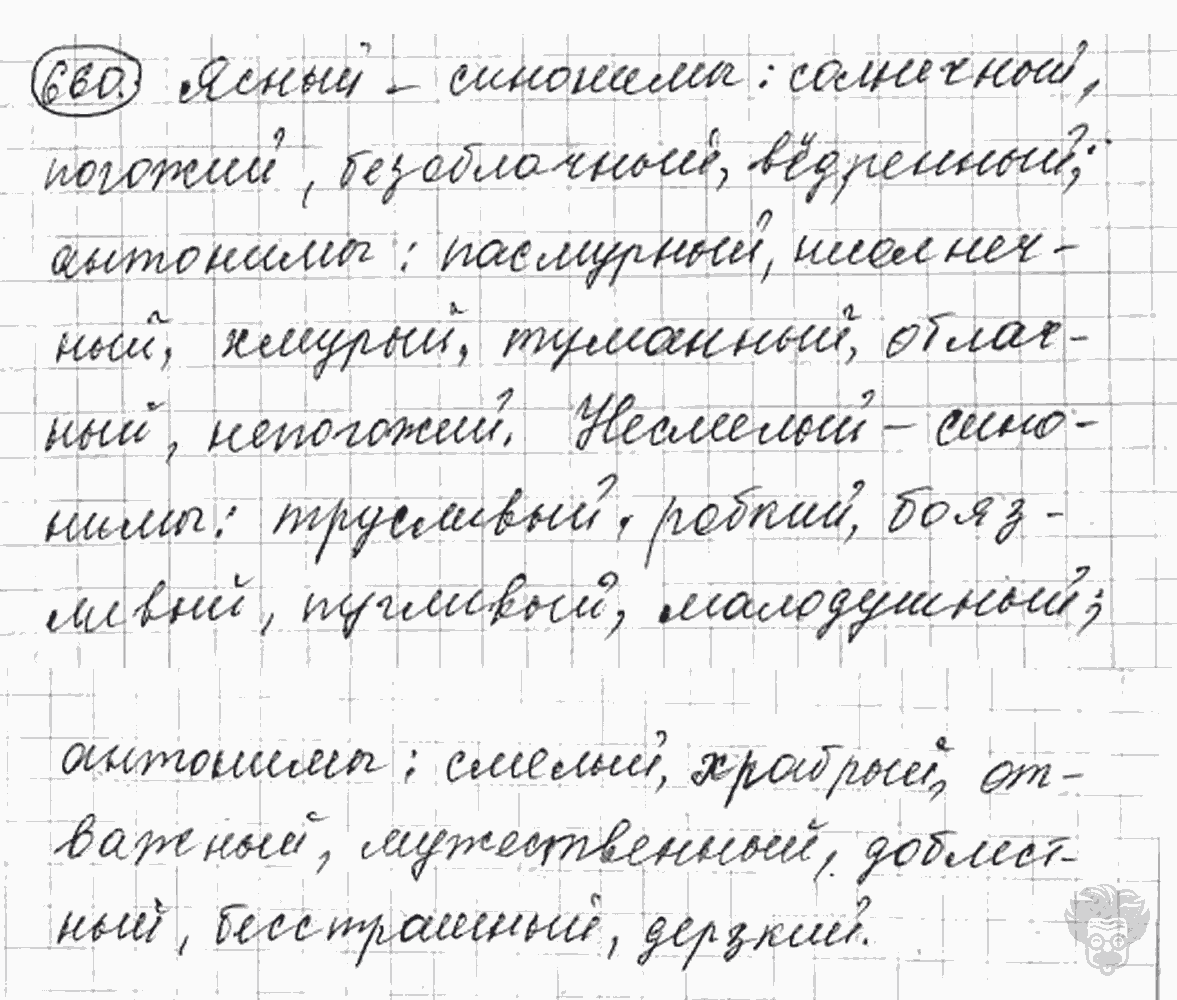 660. Ясный – синонимы: солнечный,
погожий, безоблачный, вёдренный;
антонимы: пасмурный,
ный, хмурый, туманный, облач-
ный, непогожий. Несмелый – сино-
нимы: трусливый, робкий, бояз-
ливый, пугливый, малодушный;
антонимы: смелый, храбрый, от-
важный, мужественный, доблест-
ный, бесстрашный, дерзкий.